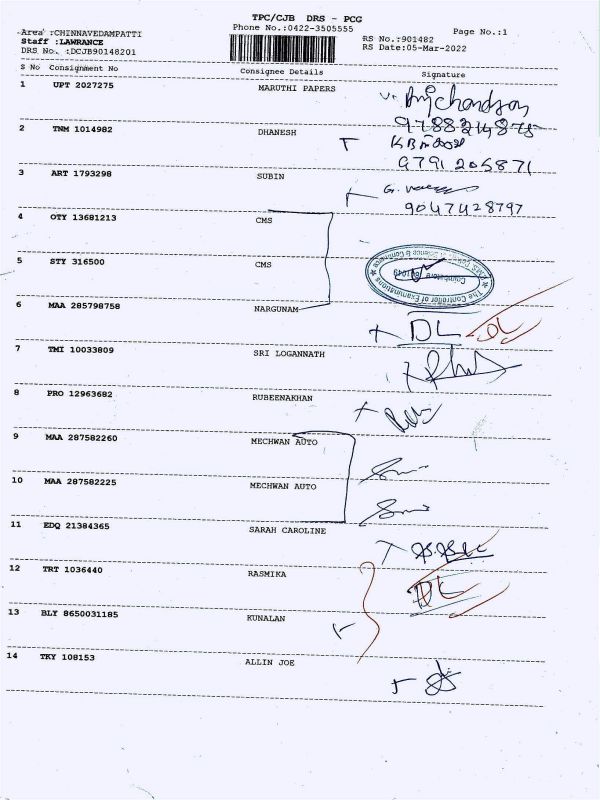 TPC/CJB DRS - PCG
Phone No.:0422-3505555
Area :CHINNAVEDAMPATTI
Staff :LAWRANCE
DRS No. :DCJB90148201
RS No.:901482
RS Date:05-Mar-2022
Page No.:1
S No Consignment No Consignee Details Signature
1 UPT 2027275 MARUTHI PAPERS
9788324875
2 TNM 1014982 DHANESH
9791205871
3 ART 1793298 SUBIN
9047428797
4 OTY 13681213 CMS
5 STY 316500 CMS
The Controller of Examinations
6 MAA 285798758 NARGUNAM
DL DL
7 TMI 10033809 SRI LOGANNATH
8 PRO 12963682 RUBEENAKHAN
9 MAA 287582260 MECHWAN AUTO
10 MAA 287582225 MECHWAN AUTO
11 EDQ 21384365 SARAH CAROLINE
12 TRT 1036440 RASMIKA
DL
13 BLY 8650031185 KUNALAN
14 TKY 108153 ALLIN JOE